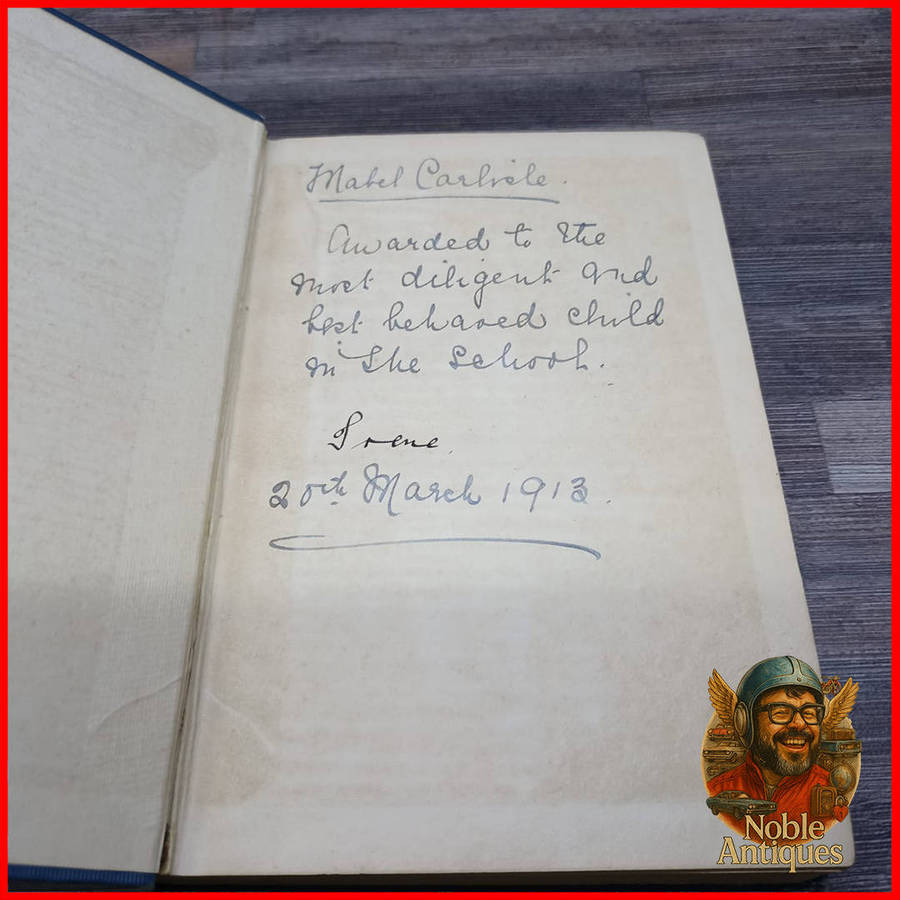 Mabel Carlisle.
Awarded to the
most diligent and
best behaved child
in the School.
Irene
20th March 1913.
Noble
Antiques